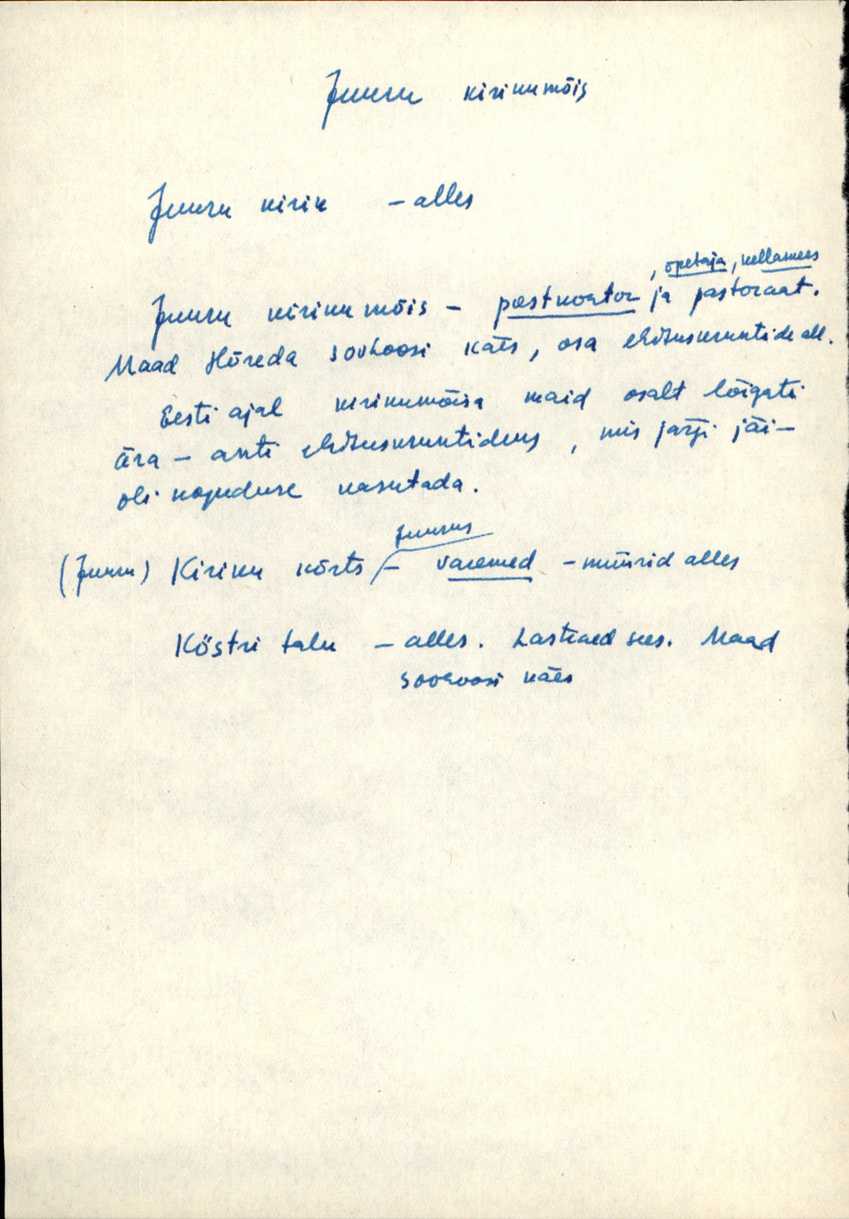 Juuru kirikumõis
Juuru kirik - alles
, õpetaja, kellamees
Juuru kirikumõis - postkontor ja pastoraat.
Maad Hõreda sovhoosi käes, osa ehituskruntide all.
Eesti ajal kirikumõisa maid osalt lõigati
ära - anti ehituskruntideks, mis järgi jäi -
oli koguduse kasutada.
Juurus
(Juuru) Kiriku kõrts - varemed - müürid alles
Köstri talu - alles. Lasteaed sees. Maad
sovhoosi käes